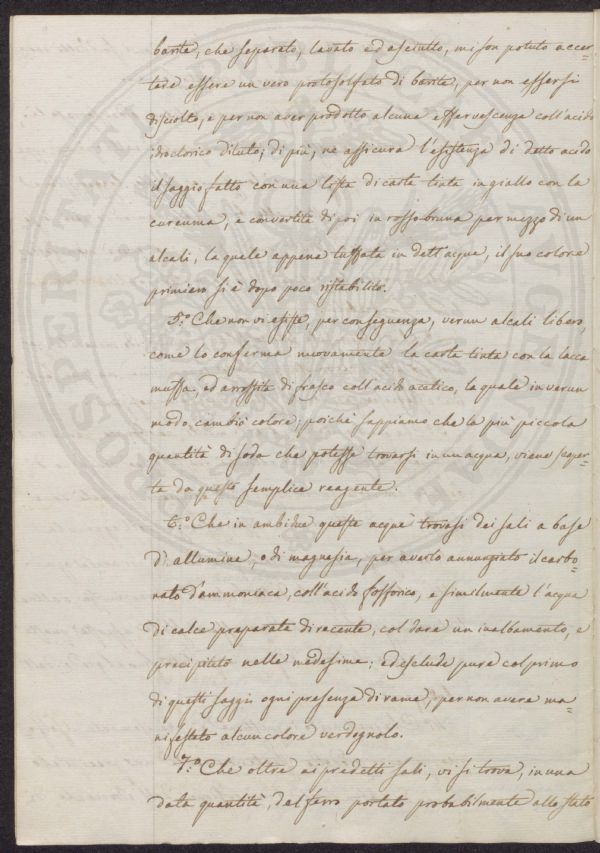 barite, che separato, lavato ed asciutto, mi son potuto accer=
tare essere un vero protosolfato di barite, per non essersi
disciolto, e per non aver prodotto alcuna effervescenza coll'acido
idroclorico diluto; di più, ne assicura l'esistenza di detto acido
il saggio fatto con una lista di carta tinta in giallo con la
curcuma, e convertita di poi in rosso-bruna per mezzo di un
alcali, la quale appena tuffata in dett'acqua, il suo colore
primiero si è dopo poco ristabilito.
5.º Che non vi esiste, per conseguenza, verun alcali libero
come lo conferma nuovamente la carta tinta con la lacca
muffa, ed arrossita di fresco coll'acido acetico, la quale in verun
modo cambiò colore; poiché sappiamo che la più piccola
quantità di soda che potesse trovarsi in un'acqua, viene scoper=
ta da questo semplice reagente.
6.º Che in ambidue queste acque trovasi dei sali a base
di allumine, o di magnesia, per averlo annunziato il carbo=
nato d'ammoniaca, coll'acido fosforico, e similmente l'acqua
di calce preparata di recente, col dare un inalbamento, e
precipitato nelle medesime; ed esclude pure col primo
di questi saggi ogni presenza di rame, per non avere ma=
nifestato alcun colore verdognolo.
7.º Che oltre ai predetti sali, vi si trova, in una
data quantità, del ferro portato probabilmente allo stato
PROSPERITATI
AUGENDAE